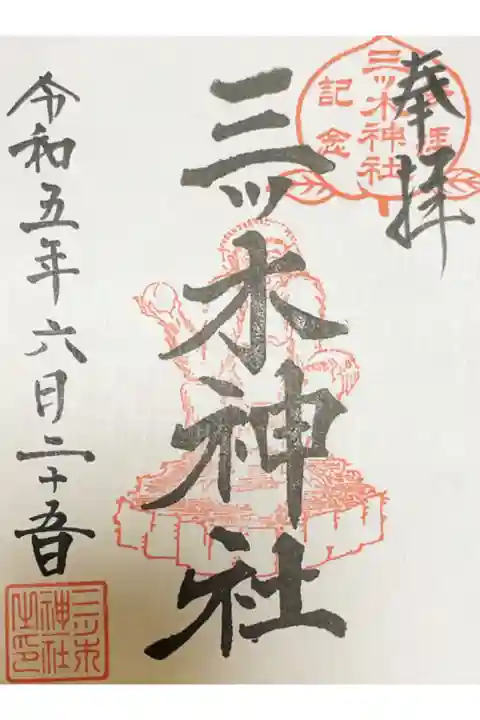 奉拝
三ツ木神社
記念
三ツ木神社
令和五年六月二十五日
三ツ木
神社
之印